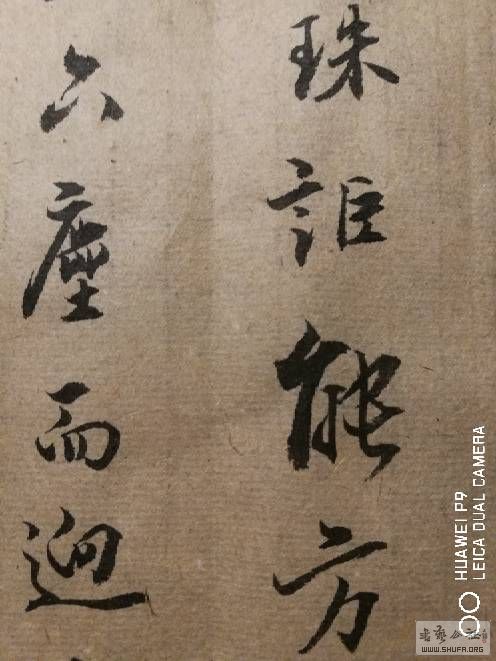 珠詎能方
六塵而迥
HUAWEI P9
LEICA DUAL CAMERA
WWW.SHUFA.ORG